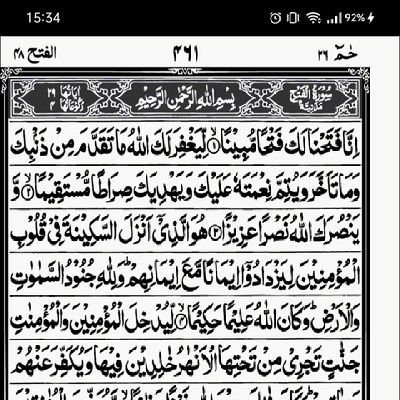 15:34 92%
الفتح ٤٨ ٤٦١ حٰمٓ ٢٦
سُوْرَةُ الْفَتْحِ مَدَنِيَّةٌ بِسْمِ اللّٰهِ الرَّحْمٰنِ الرَّحِيْمِ اٰيَاتُهَا ٢٩ رُكُوْعَاتُهَا ٤
اِنَّا فَتَحْنَا لَكَ فَتْحًا مُّبِيْنًا ۝١ لِّيَغْفِرَ لَكَ اللّٰهُ مَا تَقَدَّمَ مِنْ ذَنْۢبِكَ
وَمَا تَاَخَّرَ وَيُتِمَّ نِعْمَتَهٗ عَلَيْكَ وَيَهْدِيَكَ صِرَاطًا مُّسْتَقِيْمًا ۝٢ وَّ
يَنْصُرَكَ اللّٰهُ نَصْرًا عَزِيْزًا ۝٣ هُوَ الَّذِيْٓ اَنْزَلَ السَّكِيْنَةَ فِيْ قُلُوْبِ
الْمُؤْمِنِيْنَ لِيَزْدَادُوْٓا اِيْمَانًا مَّعَ اِيْمَانِهِمْ ؕ وَلِلّٰهِ جُنُوْدُ السَّمٰوٰتِ
وَالْاَرْضِ ؕ وَكَانَ اللّٰهُ عَلِيْمًا حَكِيْمًا ۝٤ لِّيُدْخِلَ الْمُؤْمِنِيْنَ وَالْمُؤْمِنٰتِ
جَنّٰتٍ تَجْرِيْ مِنْ تَحْتِهَا الْاَنْهٰرُ خٰلِدِيْنَ فِيْهَا وَيُكَفِّرَ عَنْهُمْ